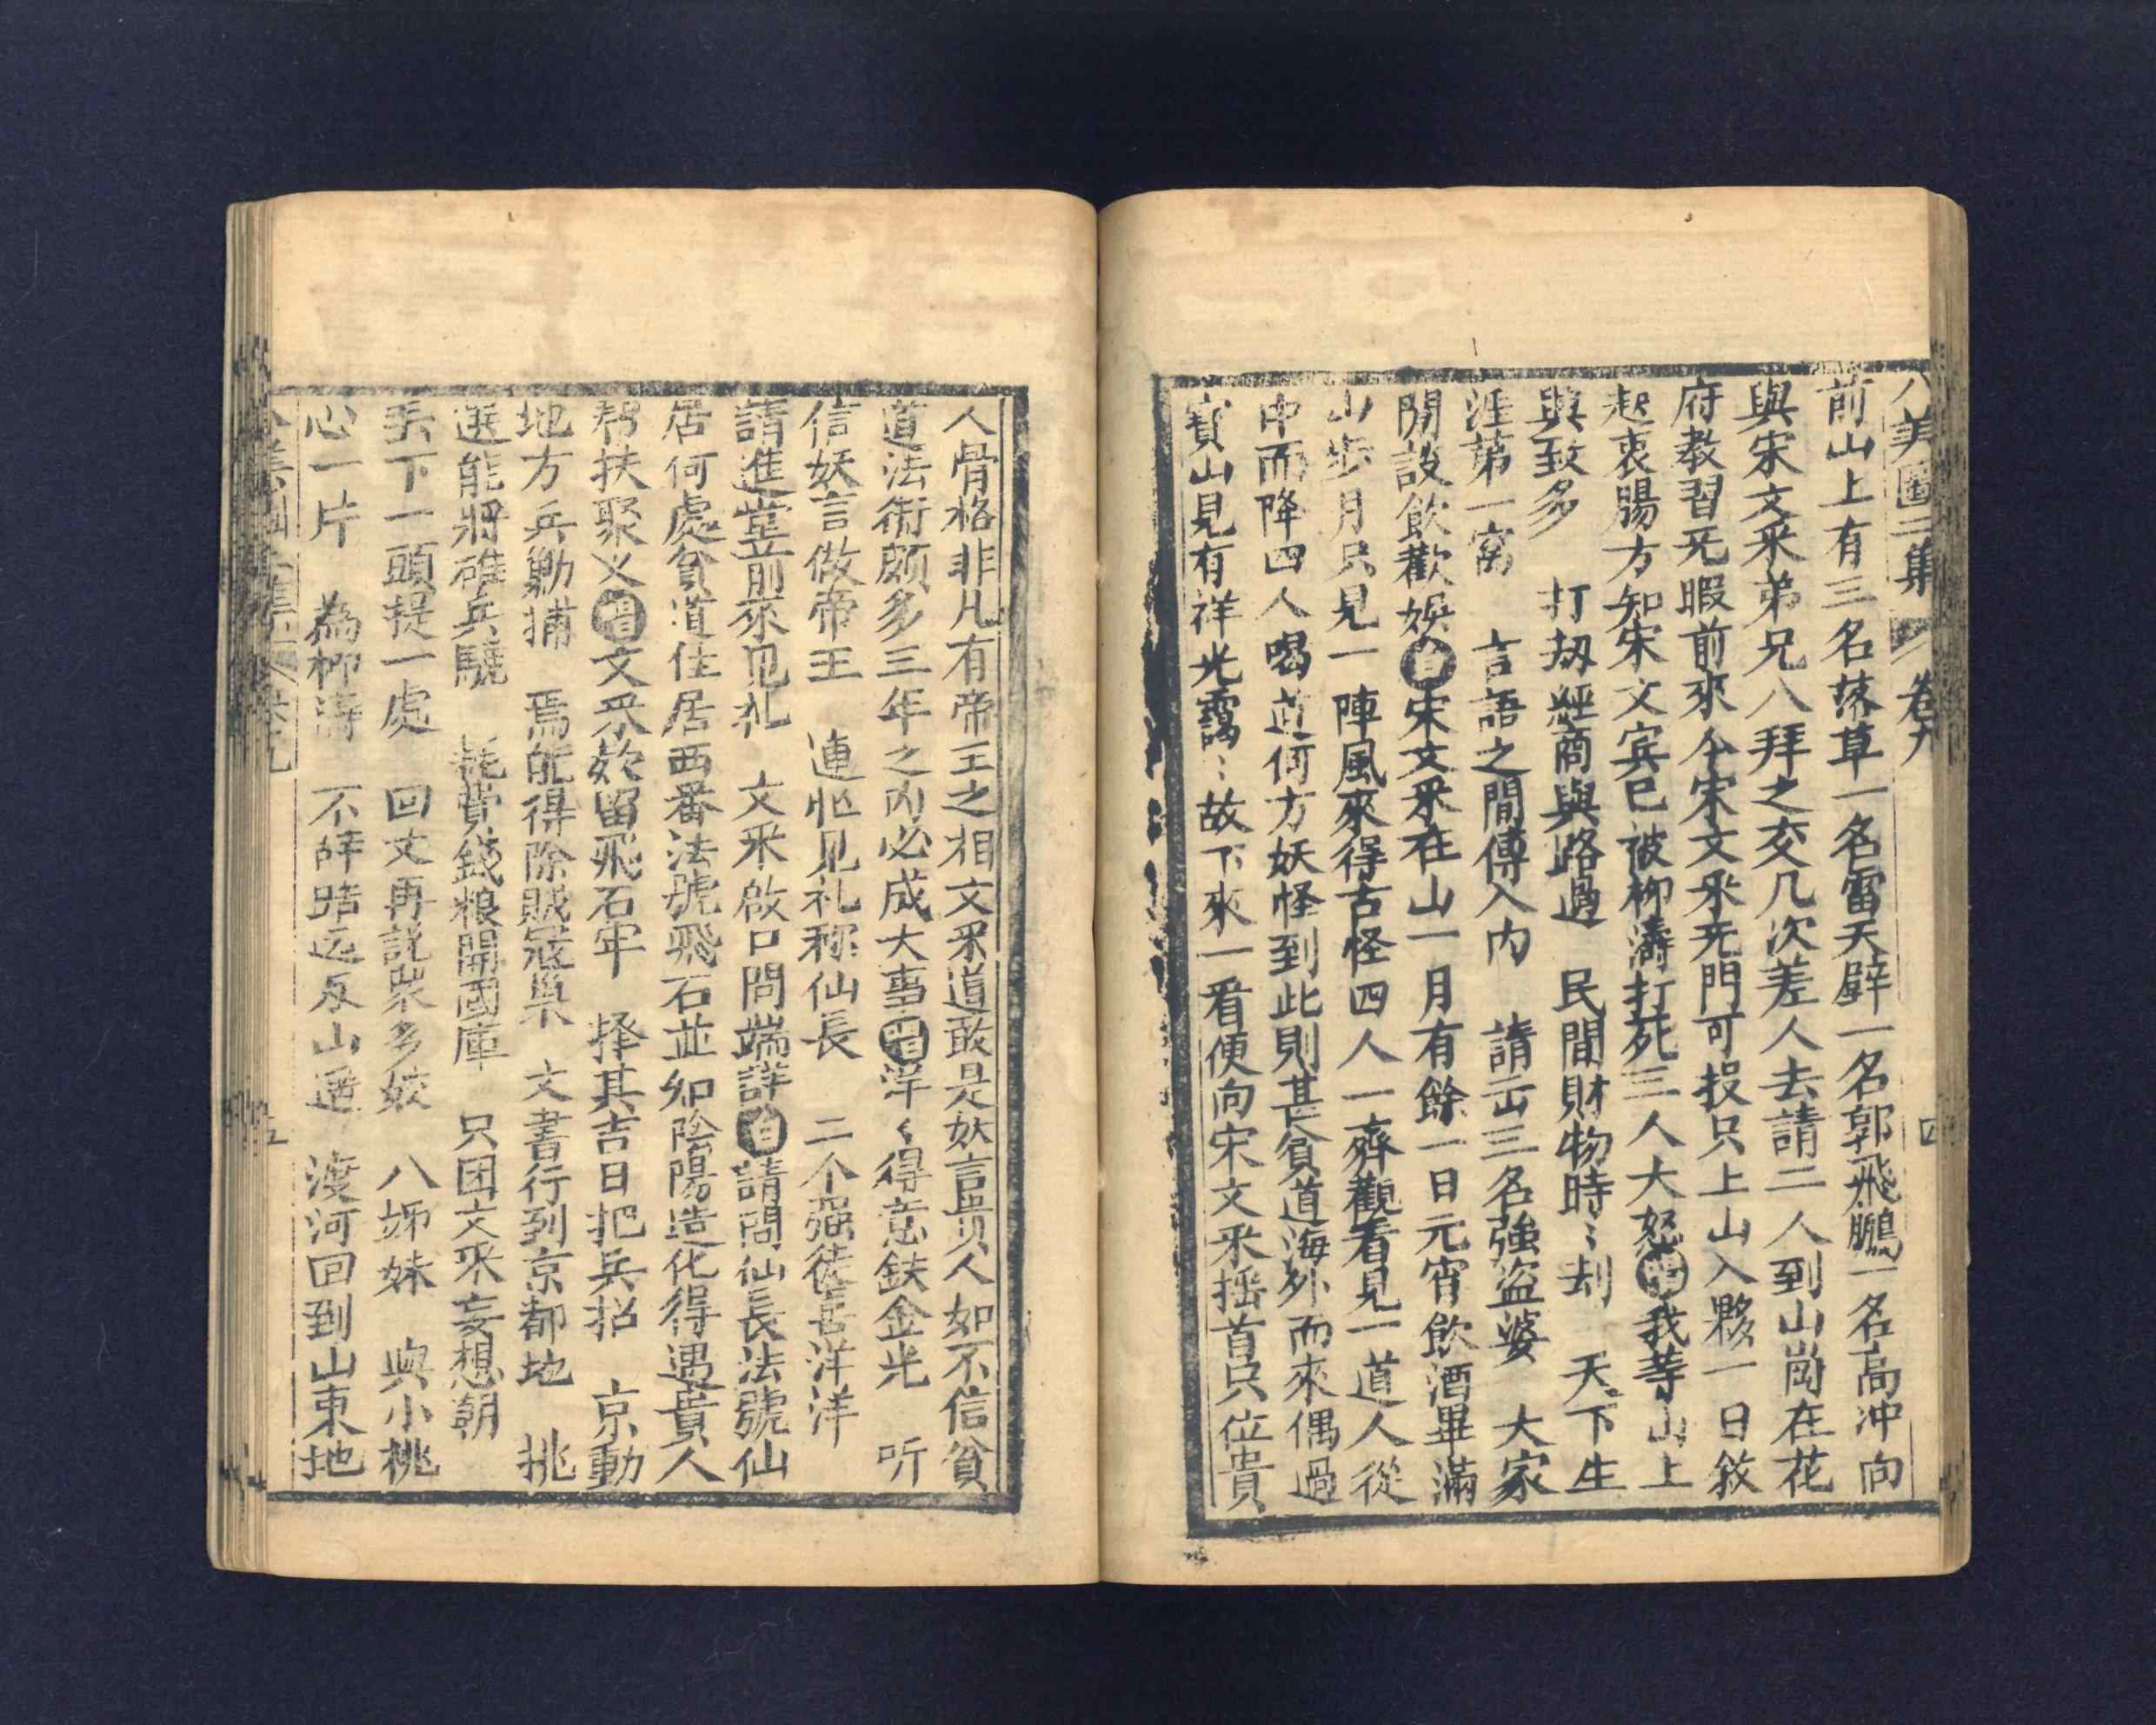 八美圖二集 卷九 四
前山上有三名落草一名雷天壁一名郭飛鵬一名高冲向
與宋文釆弟兄八拜之交几次差人去請二人到山崗在花
府教習无暇前來今宋文釆无門可投只上山入夥一日敘
起衷腸方知宋文宾已被柳濤打死三人大怒唱我等山上
興致多 打刼經商與路過 民間財物時〻刦 天下生
涯第一窩 言語之間傳入內 請出三名強盗婆 大家
開設飲歡娛白宋文釆在山一月有餘一日元宵飲酒畢滿
山步月只見一陣風來得古怪四人一齊觀看見一道人從
中而降四人喝道何方妖怪到此則甚貧道海外而來偶過
寳山見有祥光靄〻故下來一看便向宋文釆揺首只位貴
人骨格非凡有帝王之相文釆道敢是妖言貴人如不信貧
道法術頗多三年之內必成大事唱洋〻得意鉄金光 听
信妖言做帝王 連忙見礼称仙長 二个强徒喜洋洋
請進堂前來見礼 文釆啟口問端詳白請問仙長法號仙
居何處貧道住居西番法號飛石並知陰陽造化得遇貴人
帮扶聚义唱文釆欵留飛石牢 择其吉日把兵招 京動
地方兵勦捕 焉能得除賊寇巢 文書行到京都地 挑
選能將雄兵驍 耗費錢粮開國庫 只因文釆妄想朝
丟下一頭提一處 回文再説衆多姣 八姊妹 與小桃
心一片 為柳濤 不辞路远及山遥 渡河回到山東地
五